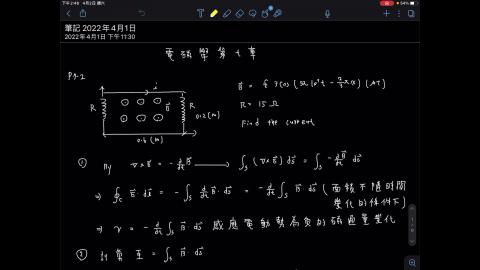 下午2:48 4月2日 週六
54%
筆記 2022年4月1日
2022年4月1日 下午11:30
電磁學第七章
P7.2
i
R
B⃗
R
0.2(m)
0.6(m)
R = 15 Ω
Find the current
① By ∇×E⃗ = -d/dt B⃗ → ∫s (∇×E⃗) ds⃗ = ∫s -d/dt B⃗ ds⃗
⇒ ∮c E⃗·dl⃗ = -∫s d/dt B⃗·ds⃗ = -d/dt ∫s B⃗·ds⃗ (面積不隨時間
變化的條件下)
⇒ V = -d/dt ∫s B⃗·ds⃗ 感應電動勢為負的磁通量變化
② 計算 = ∫s B⃗·ds⃗